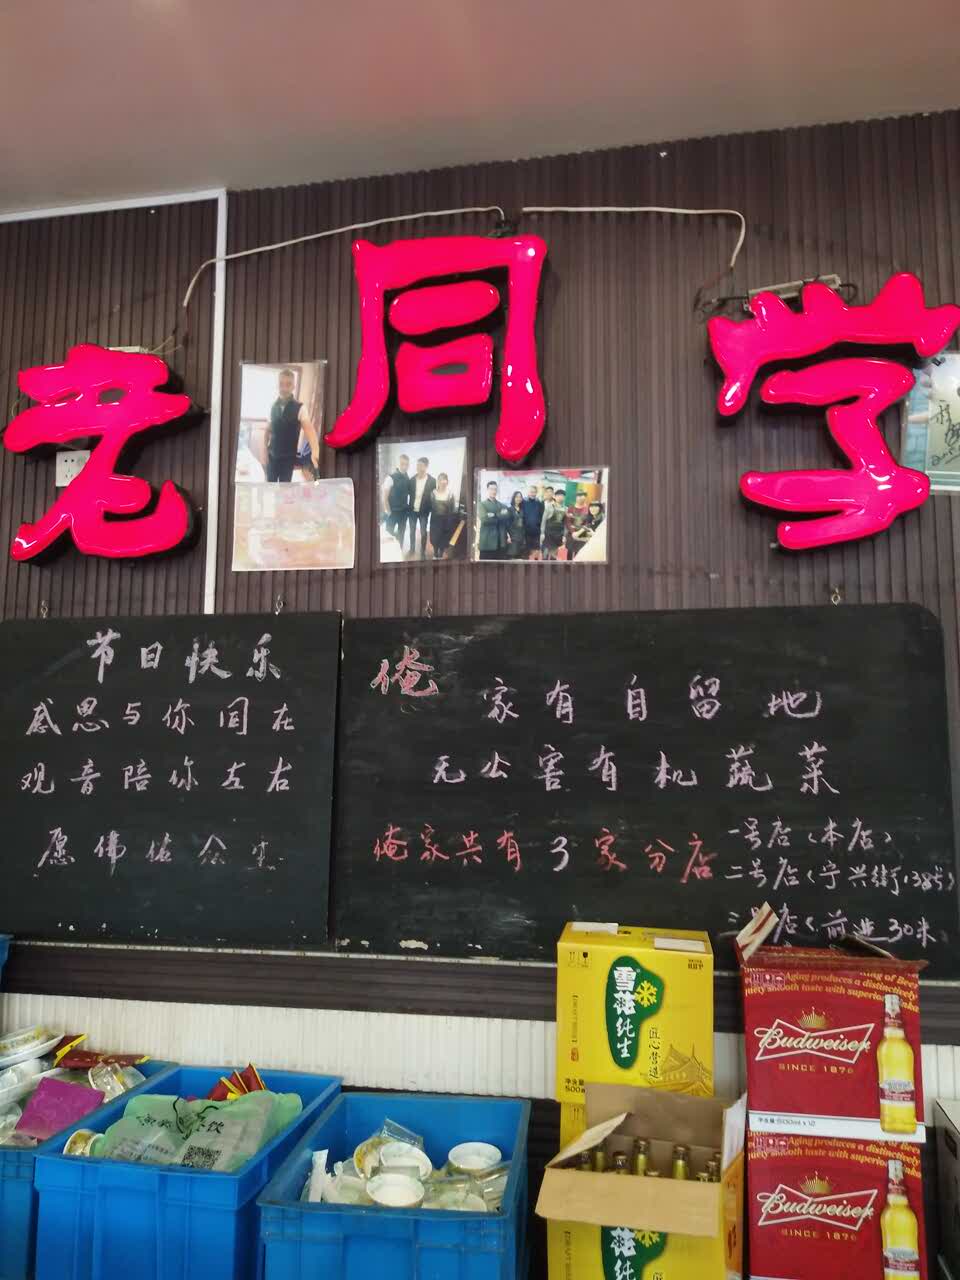 老同学
节日快乐
感恩与你同在
观音陪你左右
愿佛佑众生
俺家有自留地
无公害有机蔬菜
俺家共有3家分店
一号店(本店)
二号店(宁兴街138号)
三号店(前进30米)
雪花纯生
匠心营造
净含量
500
Aging produces a distinctively
smooth taste with superior
King of Beers
Budweiser
SINCE 1876
Aging produces a distinctively
smooth taste with superior
Budweiser
SINCE 1876